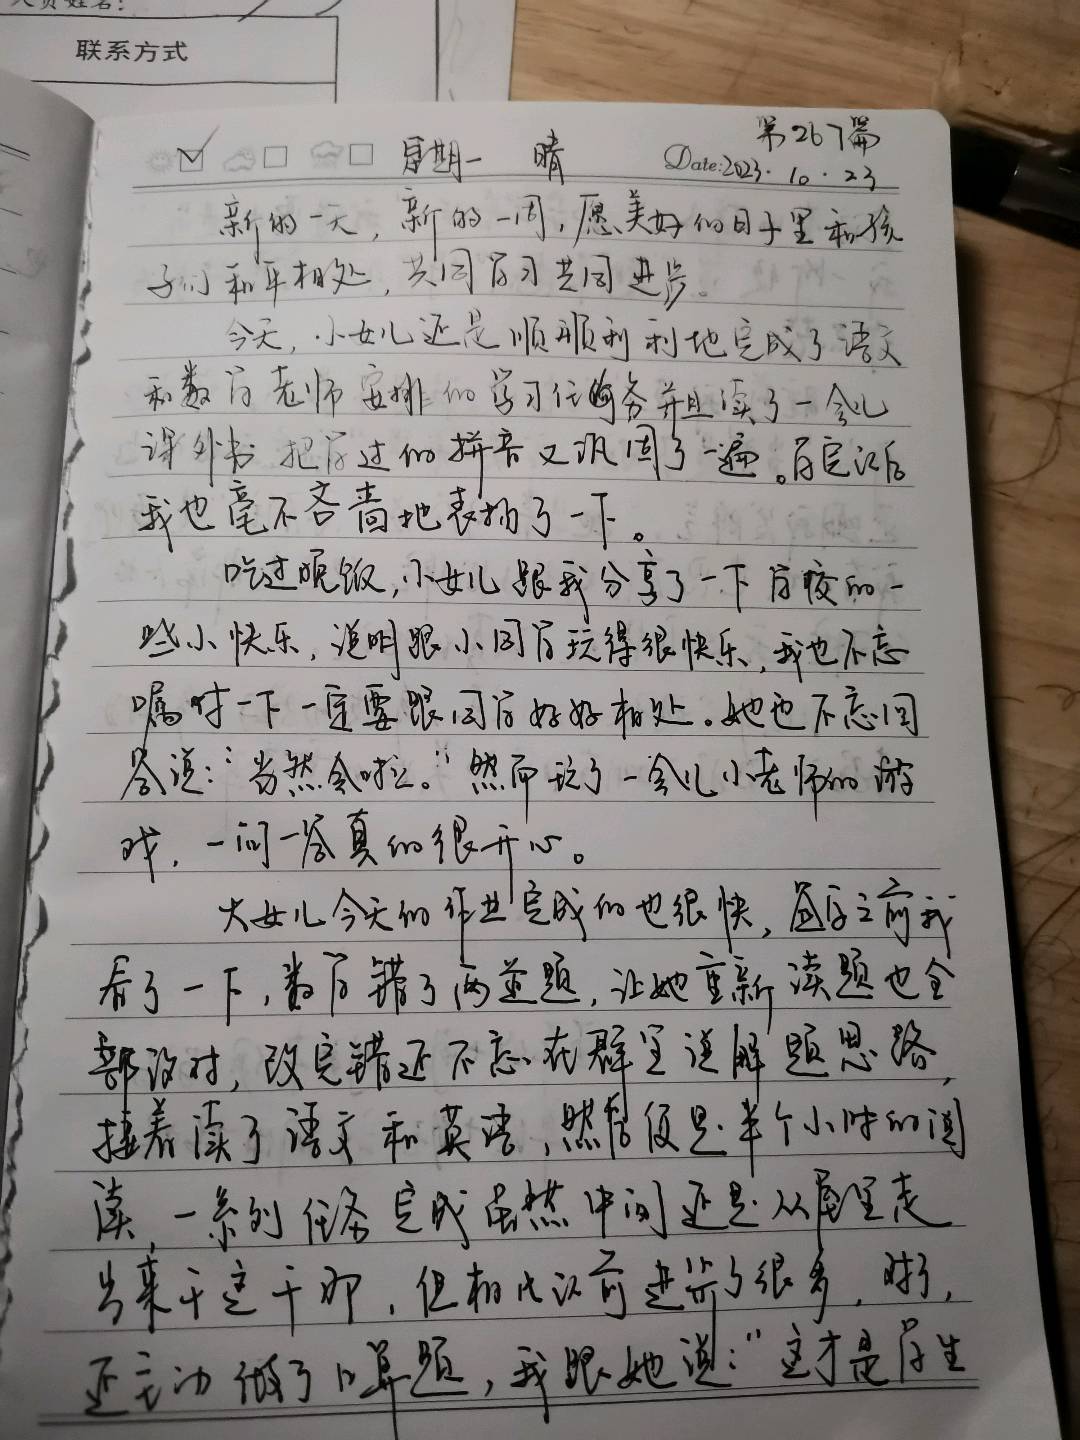 联系方式
第267篇
星期一 晴 Date:2023.10.23
新的一天，新的一周，愿美好的日子里和孩
子们和平相处，共同学习共同进步。
今天，小女儿还是顺顺利利地完成了语文
和数学老师安排的学习任务并且读了一会儿
课外书 把学过的拼音又巩固了一遍。学完以后
我也毫不吝啬地表扬了一下。
吃过晚饭，小女儿跟我分享了一下学校的一
些小快乐，说明跟小同学玩得很快乐，我也不忘
嘱咐一下一定要跟同学好好相处。她也不忘回
答说：“当然会啦。”然而玩了一会儿小老师的游
戏，一问一答真的很开心。
大女儿今天的作业完成的也很快，之前我
看了一下，数学错了两道题，让她重新读题也全
部改对，改完错还不忘在群里说解题思路，
接着读了语文和英语，然后便是半个小时的阅
读，一系列任务完成虽然中间还是从屋里走
出来干这干那，但相比以前进步了很多，对了，
还主动做了口算题，我跟她说：“这才是学生